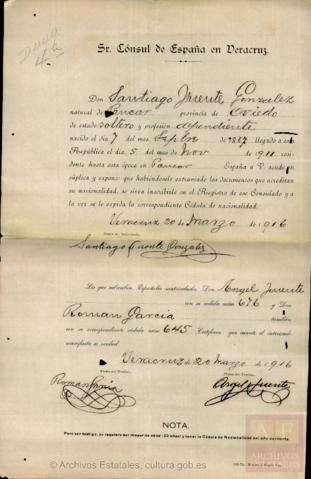 Sr. Cónsul de España en Veracruz.
Don Santiago Fuente Gonzalez
natural de provincia de Oviedo
de estado soltero y profesión dependiente
nacido el día 7 del mes Septbre de 1887 llegado a esta
República el día 5 del mes de Nov de 1911
dente hasta esta época en Panuco España á V. acude
súplica y expone: que habiéndosele extraviado los documentos que acreditan
su nacionalidad, se sirva inscribirle en el Registro de ese Consulado y a
la vez se le expida la correspondiente Cédula de nacionalidad.
Veracruz 20 de Marzo de 1916
Santiago Fuente González
Los que subscriben Españoles matriculados. Don Angel Fuente
con su cédula núm 676 y Don
Roman Garcia
con su correspondiente cédula núm 645 Certifican que cuanto el interesado
manifiesta es verdad.
Veracruz de 20 Marzo de 1916
Roman Garcia
Angel Fuente
NOTA.
Para ser testigo, se requiere ser mayor de edad (23 años) y tener la Cédula de Nacionalidad del año corriente.
ARCHIVOS
© Archivos Estatales, cultura.gob.es